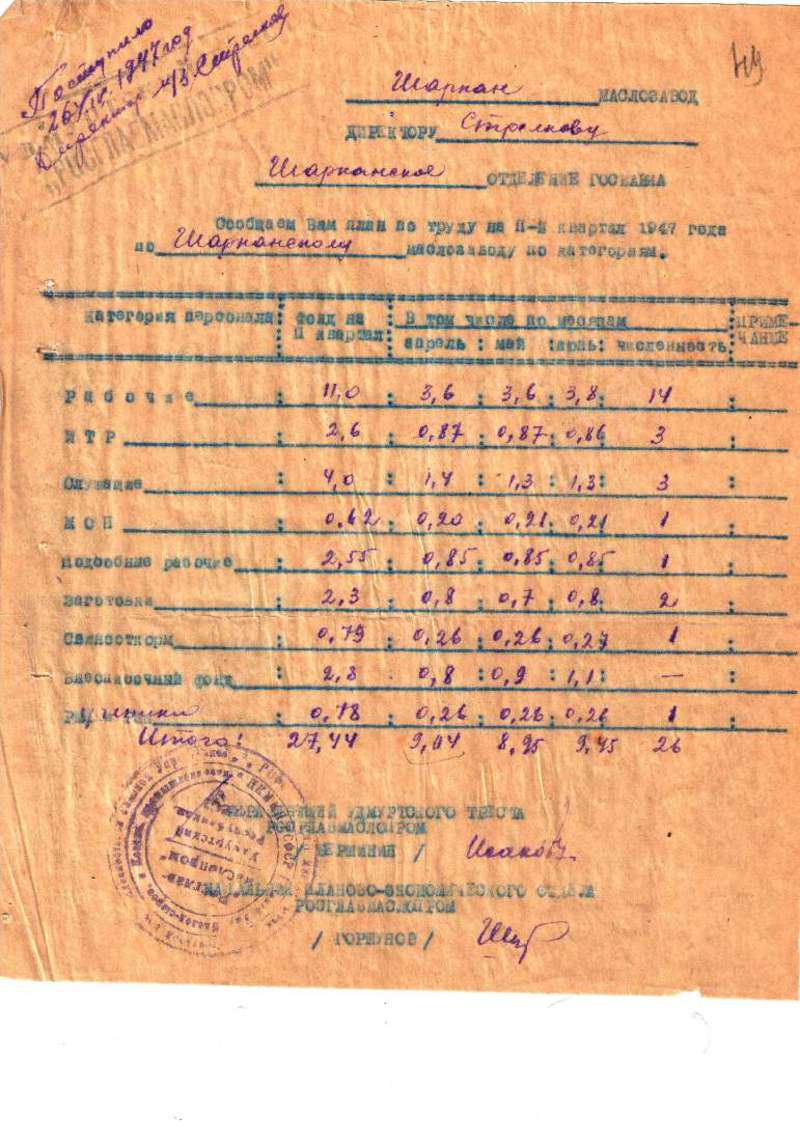 Поступило
26/IV 1947 год
Директор м/з Стрелков
"РОСГЛАВМАСЛОПРОМ"
49
Шаркан МАСЛОЗАВОД
ДИРЕКТОРУ Стрелкову
Шарканское ОТДЕЛЕНИЕ ГОСБАНКА
Сообщаем Вам план по труду на II-й квартал 1947 года
по Шарканскому маслозаводу по категориям.
Категория персонала : Фонд на II квартал : В том числе по месяцам : ПРИМЕ-ЧАНИЕ
апрель : май : июнь : численность
Рабочие : 11,0 : 3,6 : 3,6 : 3,8 : 14 :
ИТР : 2,6 : 0,87 : 0,87 : 0,86 : 3 :
Служащие : 4,0 : 1,4 : 1,3 : 1,3 : 3 :
МОП : 0,62 : 0,20 : 0,21 : 0,21 : 1 :
Подсобные рабочие : 2,55 : 0,85 : 0,85 : 0,85 : 1 :
Заготовка : 2,3 : 0,8 : 0,7 : 0,8 : 2 :
Свинооткорм : 0,79 : 0,26 : 0,26 : 0,27 : 1 :
Внесписочный фонд : 2,8 : 0,8 : 0,9 : 1,1 : — :
Ученики : 0,78 : 0,26 : 0,26 : 0,26 : 1 :
Итого: 27,44 9,04 8,95 9,45 26
УПРАВЛЯЮЩИЙ УДМУРТСКОГО ТРЕСТА
РОСГЛАВМАСЛОПРОМ
/ ВЕРШИНИН /
НАЧАЛЬНИК ПЛАНОВО-ЭКОНОМИЧЕСКОГО ОТДЕЛА
РОСГЛАВМАСЛОПРОМ
/ ГОРШУНОВ /